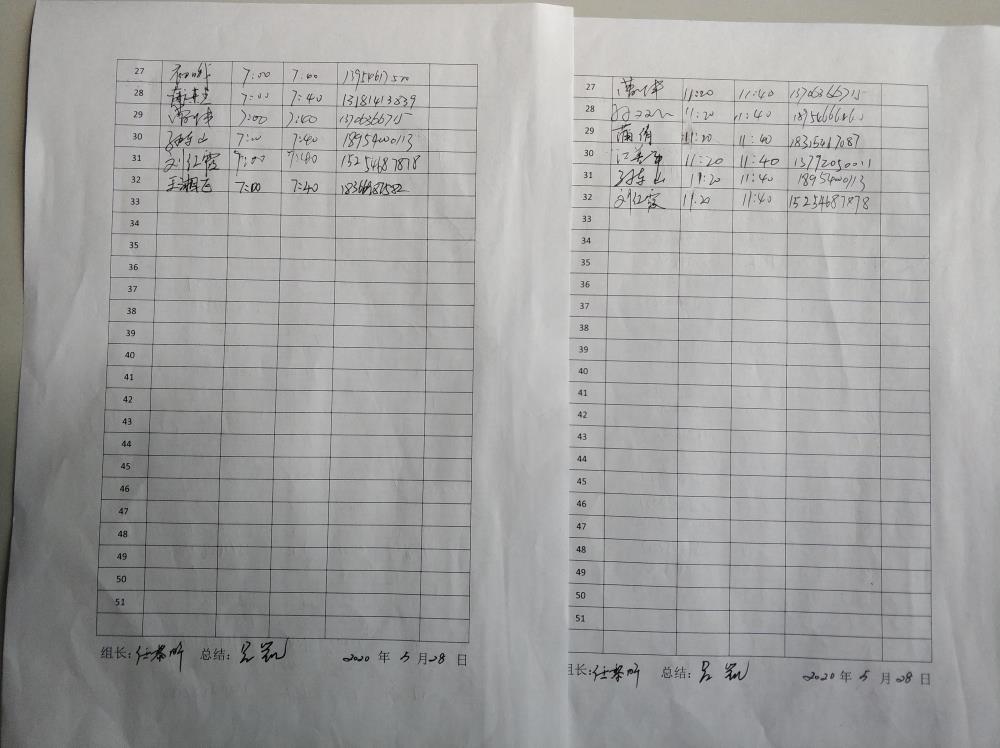 27 7:00 7:40
28 7:00 7:40 13181413839
29 7:00 7:40 13706366715
30 7:00 7:40 18954000113
31 刘红霞 7:00 7:40 15254687878
32 王湘飞 7:00 7:40
33
34
35
36
37
38
39
40
41
42
43
44
45
46
47
48
49
50
51
组长: 总结: 2020 年 5 月 28 日
27 11:20 11:40 13706366715
28 11:20 11:40
29 蒲倩 11:20 11:40 18315417087
30 11:20 11:40 13792050011
31 11:20 11:40 18954000113
32 刘红霞 11:20 11:40 15254687878
33
34
35
36
37
38
39
40
41
42
43
44
45
46
47
48
49
50
51
组长: 总结: 2020 年 5 月 28 日